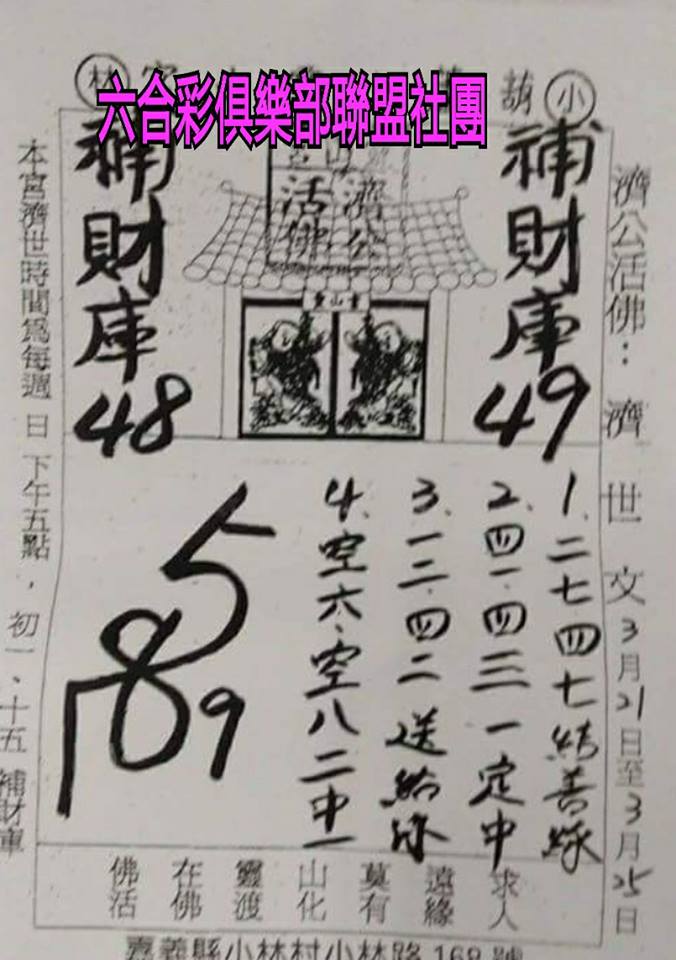 六合彩俱樂部聯盟社團
小
葫
林
濟公活佛：濟世文3月21日至3月25日
補財庫49
濟公
活佛
補財庫48
1、二七四七結善緣
2、四一、四三一定中
3、一二、四二送給你
4、空六、空八二中一
5
8
7
9
求人
遠緣
莫有
山化
靈渡
在佛
佛活
本宮濟世時間為每週日下午五點，初一、十五補財庫
嘉義縣小林村小林路168號